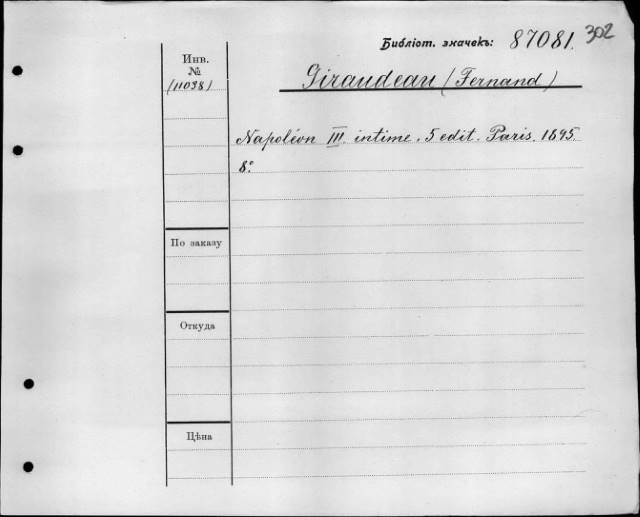 Библіот. значекъ: 87081. 302
Инв.
№
(11038)
Giraudeau (Fernand)
Napoléon III. intime. 5 edit. Paris. 1895.
8°
По заказу
Откуда
Цѣна